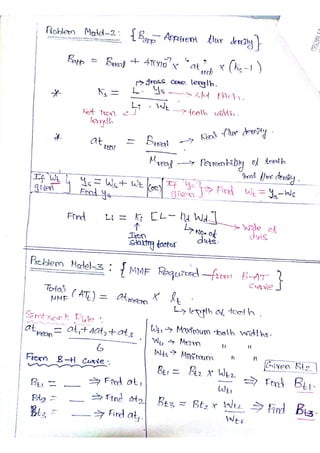 Problem Model-2: { Bapp - Apparent flux density }
Bapp = Breal + 4π×10⁻⁷ × "at" real × (Ks-1)
→ gross core length.
* Ks = L · ys → slot pitch.
Li · Wt → tooth width.
Net Iron length
* at real = Breal → Real flux density.
μreal → Permeability of tooth
real flux density.
If Wt given } ys = Ws + Wt (or) { If ys given } ⇒ Find Wt = ys - Ws
Find ys
Find Li = Ki [L - nd Wd] → Wide of ducts
Iron stacking factor
→ No. of ducts.
Problem Model-3: { MMF Required from B-AT curve }
Total MMF (ATt) = at mean × lt
→ length of tooth.
Simpson's Rule:
at mean = at1 + 4at2 + at3
6
Wt1 → Maximum tooth widths.
Wt2 → Mean " "
Wt3 → Minimum " "
From B-H Curve:
Given Bt2
Bt1 = ___ ⇒ Find at1
Bt2 = ___ ⇒ Find at2
Bt3 = ___ ⇒ Find at3.
Bt1 = Bt2 × Wt2 ⇒ Find Bt1.
Wt1
Bt3 = Bt2 × Wt2 ⇒ Find Bt3.